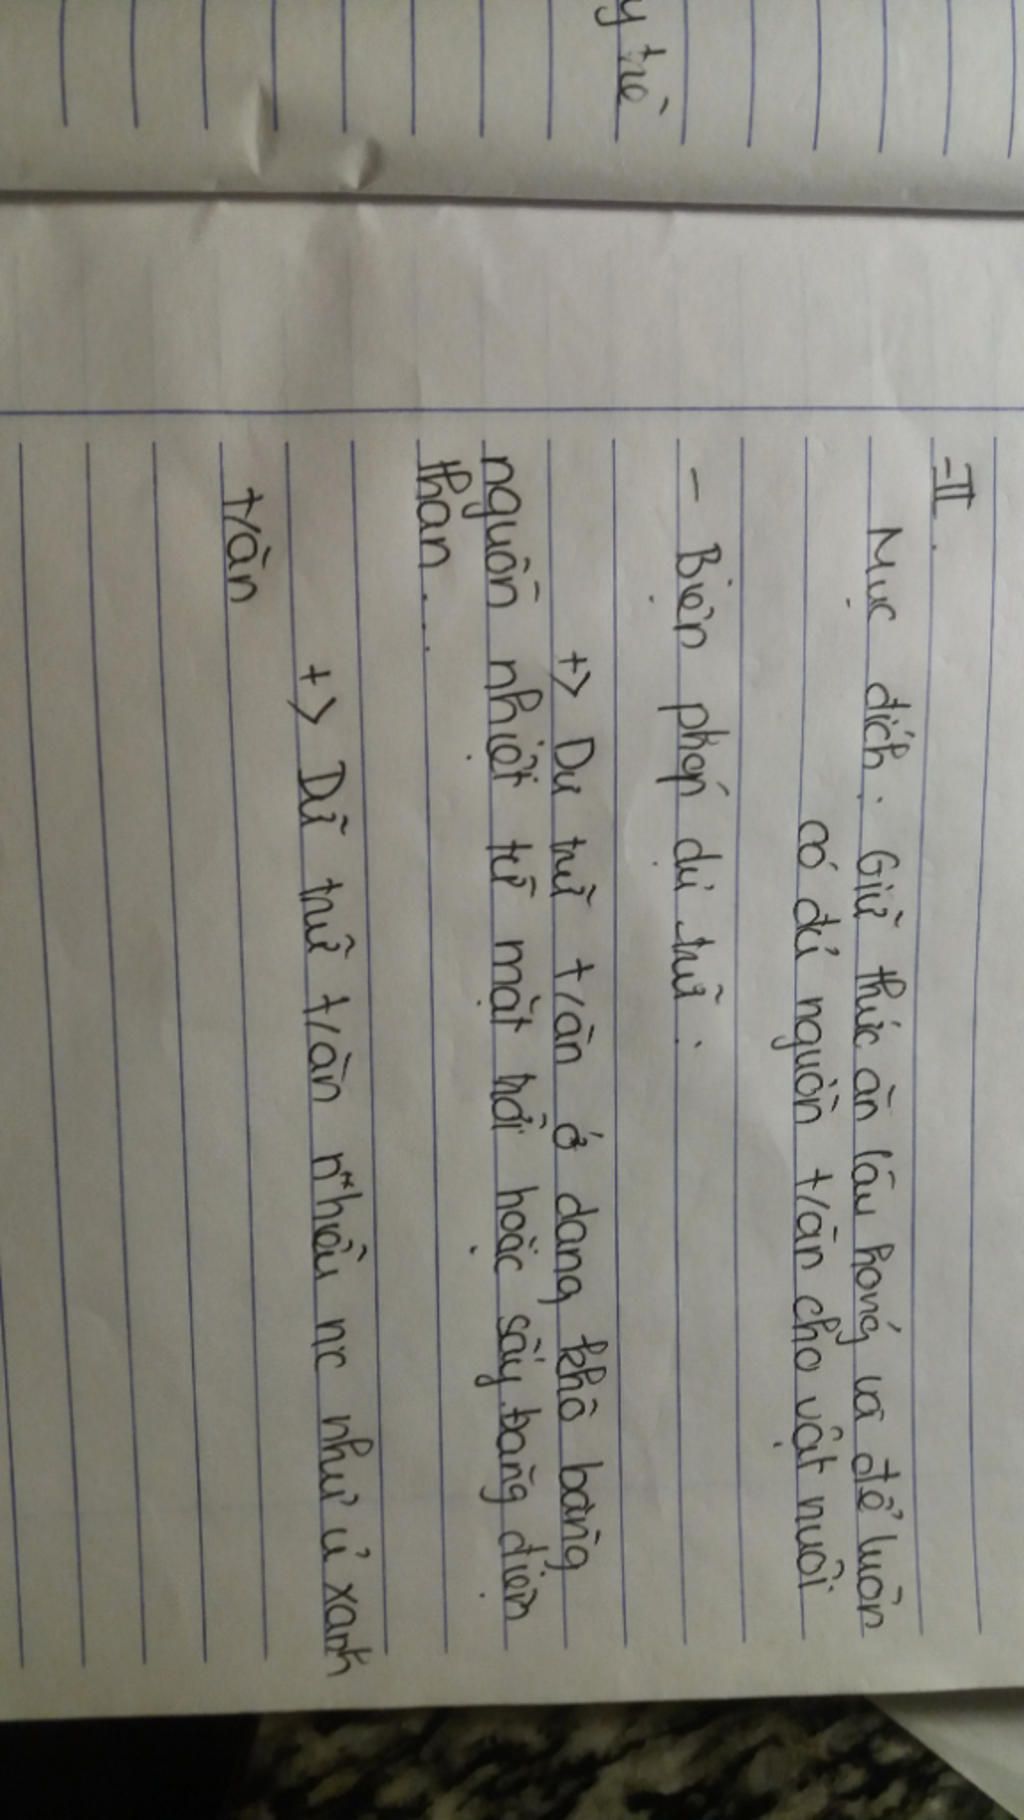 y trê
II.
Mục đích: Giữ thức ăn lâu hỏng và để luôn
có đủ nguồn t/ăn cho vật nuôi
- Biện pháp dự trữ:
+> Dự trữ t/ăn ở dạng khô bằng
nguồn nhiệt từ mặt trời hoặc sấy bằng điện
than...
+> Dữ trữ t/ăn nhiều nc như ủ xanh
t/ăn